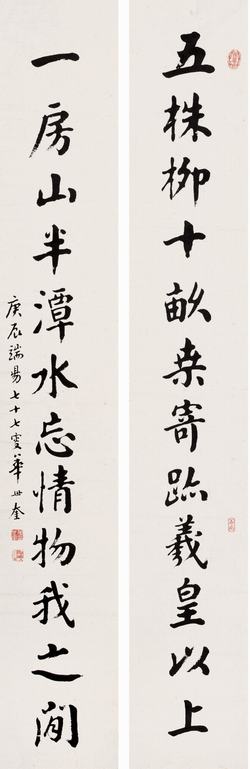 五株柳十畝桒寄跡羲皇以上
一房山半潭水忘情物我之間
庚辰端昜七十七叟華世奎